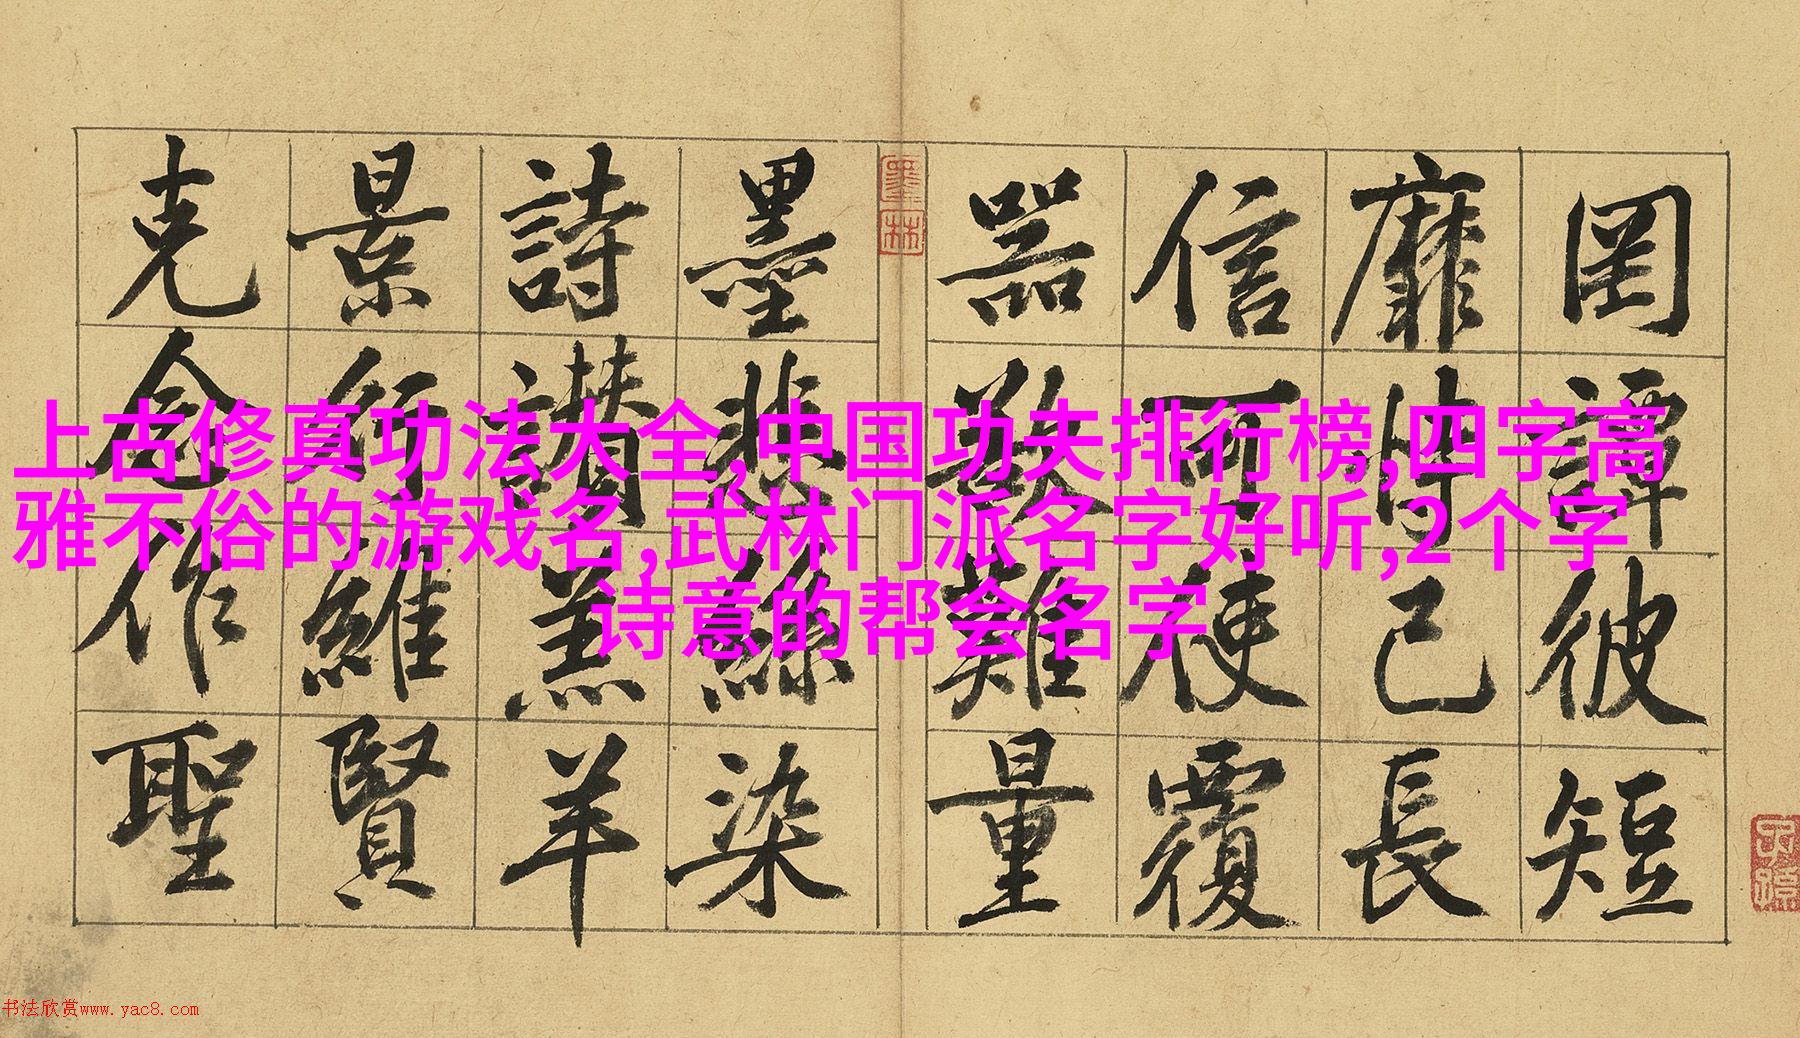 罔譚彼短
靡恃己長
信可使覆
器欲難量
墨悲絲染
詩讃羔羊
景行維賢
克念作聖
墨林
子孫
上古修真功法大全,中国功夫排行榜,四字高
雅不俗的游戏名,武林门派名字好听,2个字
诗意的帮会名字
书法欣赏www.yac8.com